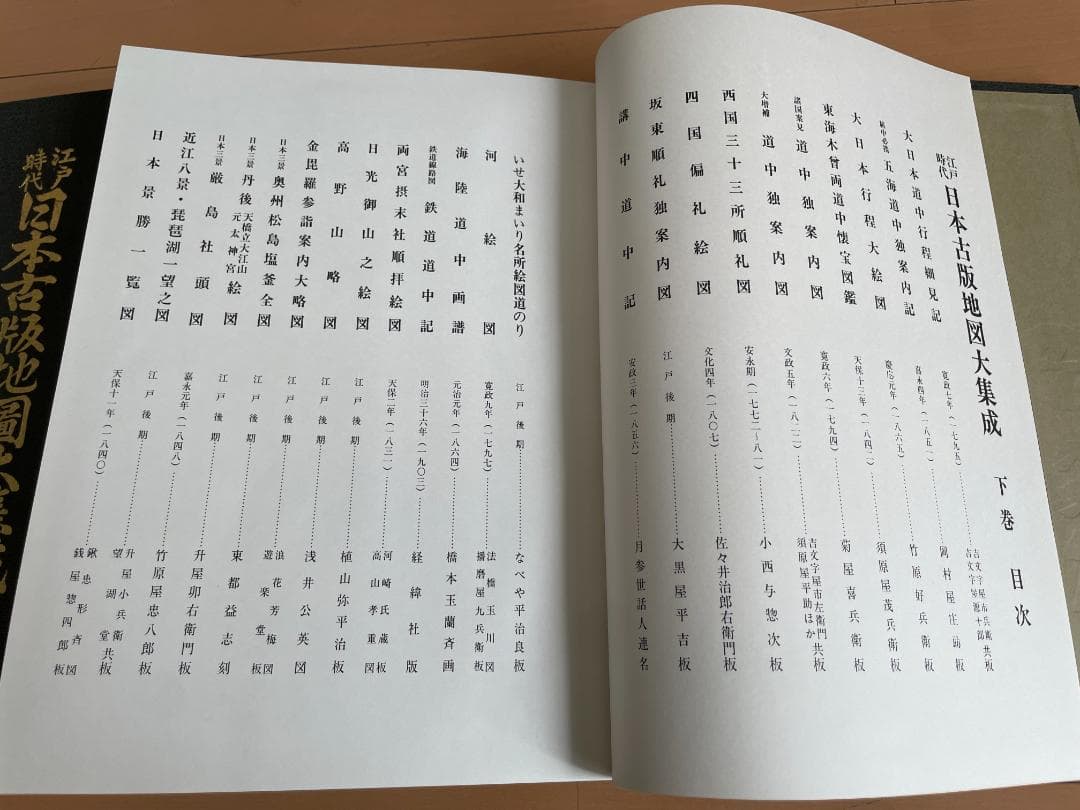 江戸時代 日本古版地図大集成 下巻 目次
大日本道中行程細見記 寛政七年(一七九五)……吉文字屋市兵衛 吉文字屋源十郎 共板
五海道中独案内記 嘉永四年(一八五一)……岡村屋庄助板
大日本行程大絵図 慶応元年(一八六五)……竹原好兵衛板
東海木曾両道中懐宝図鑑 天保十三年(一八四二)……須原屋茂兵衛板
諸国案見 道中独案内図 寛政六年(一七九四)……菊屋喜兵衛板
大増補 道中独案内図 文政五年(一八二二)……吉文字屋市左衛門 須原屋平助ほか 共板
西国三十三所順礼図 安永期(一七七二〜八一)……小西与惣次板
四国偏礼絵図 文化四年(一八〇七)……佐々井治郎右衛門板
坂東順礼独案内図 江戸後期……大黒屋平吉板
講中道中記 安政三年(一八五六)……月参世話人連名
いせ大和まいり名所絵図道のり 江戸後期……なべや平治良板
河絵図 寛政九年(一七九七)……法橋玉川図 播磨屋九兵衛板
海陸道中画譜 元治元年(一八六四)……橋本玉蘭斉画
鉄道線路図 鉄道道中記 明治三十六年(一九〇三)……経緯社版
両宮摂末社順拝絵図 天保二年(一八三一)……河崎氏蔵板 高山孝重図
日光御山之絵図 江戸後期……植山弥平治板
高野山略図 江戸後期……浅井公英図
金毘羅参詣案内大略図 江戸後期……浪花芳梅図 遊楽堂板
日本三景 奥州松島塩釜全図 江戸後期……東都益志刻
日本三景 丹後 天橋立大江山 元太神宮 絵図 江戸後期……升屋卯右衛門板
日本三景 厳島社頭図 嘉永元年(一八四八)……竹原屋忠八郎板
近江八景・琵琶湖一望之図 江戸後期……升屋小兵衛 望湖堂 共板
日本景勝一覧図 天保十一年(一八四〇)……鍬忠形斉図 銭屋惣四郎板
江戸時代 日本古版地圖大集成